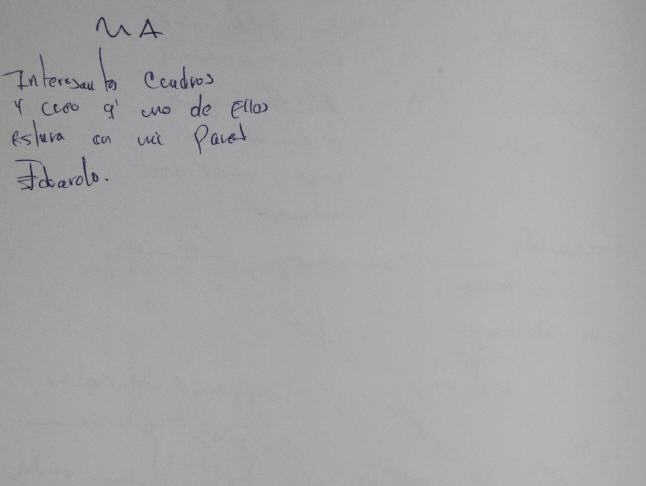 MA
Interesantes Cuadros
Y creo q' uno de Ellos
estura en mi Pared